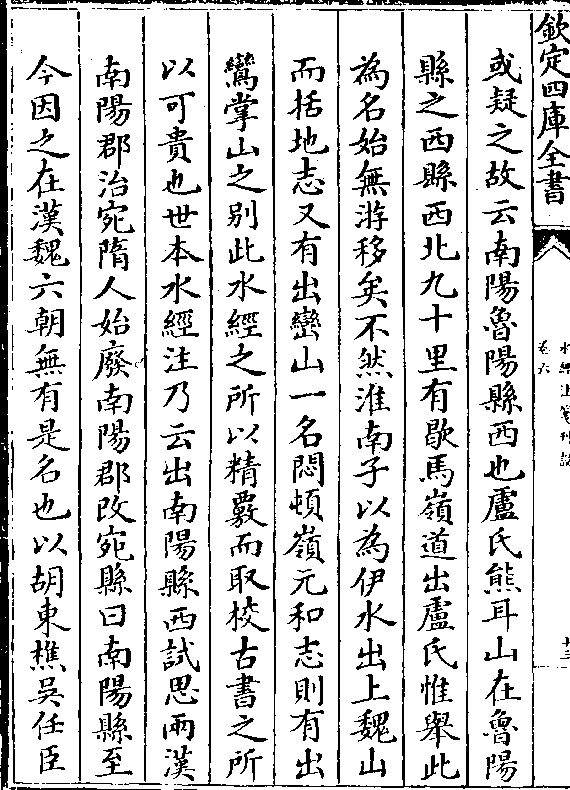 欽定四庫全書
水經注箋刊誤
卷六
十三
或疑之故云南陽魯陽縣西也盧氏熊耳山在魯陽
縣之西縣西北九十里有歇馬嶺道出盧氏惟舉此
為名始無游移矣不然淮南子以為伊水出上魏山
而括地志又有出巒山一名悶頓嶺元和志則有出
鸞掌山之别此水經之所以精覈而取校古書之所
以可貴也世本水經注乃云出南陽縣西試思兩漢
南陽郡治宛隋人始廢南陽郡改宛縣曰南陽縣至
今因之在漢魏六朝無有是名也以胡東樵吳任臣